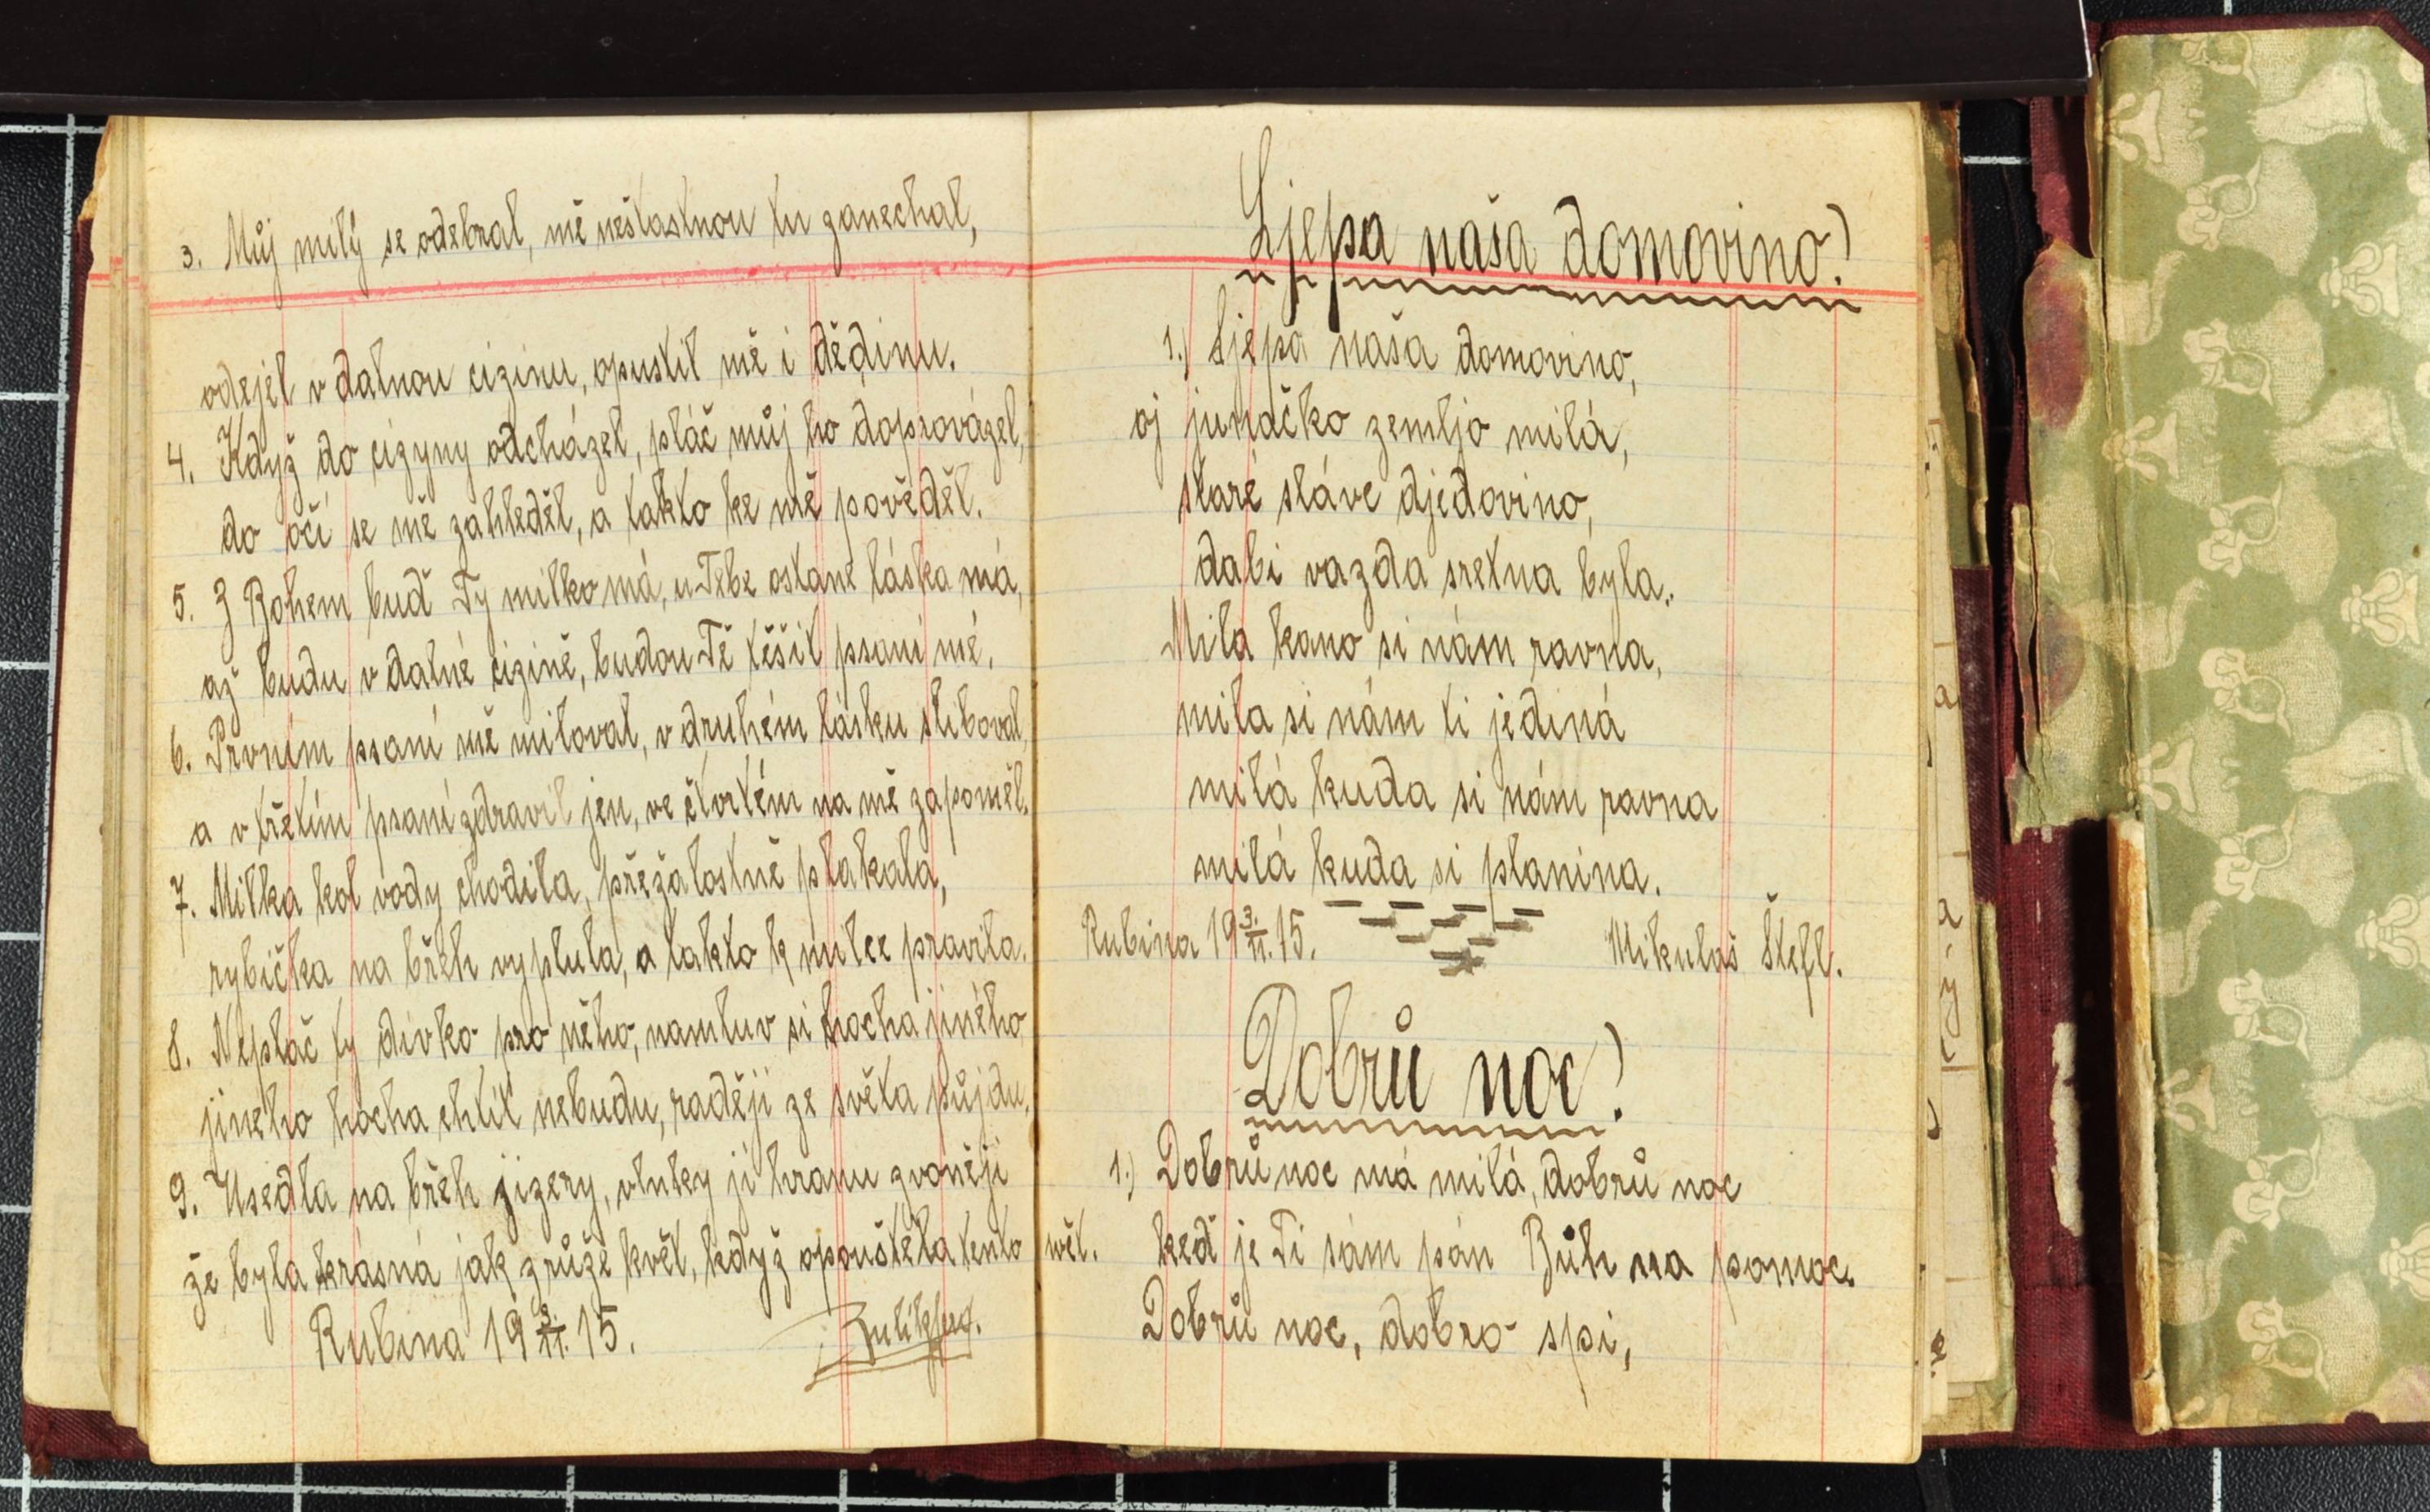 3. Můj milý se odebral, mě neštastnou tu zanechal,
odejel v dalnou cizinu, opustil mě i dědinu.
4. Když do cizyny odcházel, pláč můj ho doprovázel,
do očí se mě zahleděl, a takto ke mě pověděl.
5. Z Bohem buď Ty milko má, u Tebe ostane láska má,
až budu v dalné cizině, budou Tě těšit psaní mé.
6. Prvním psaní mě miloval, v druhém lásku sliboval,
a v třetím psaní zdravil jen, ve čtvrtém na mě zapoměl.
7. Milka kol vody chodila, přežalostně plakala,
rybička na břeh vyplula, a takto k milce pravila.
8. Neplač ty dívko pro něho, namluv si hocha jiného
jineho hocha chtít nebudu, raději ze světa půjdu.
9. Usedla na břeh jizery, vlnky jí hranu zvonějí
že byla krásná jak z růže květ, když opouštěla tento svět.
Rubina 19 3./11. 15.
Ljepa naša domovino!
1.) Ljepa naša domovino,
oj junačko zemljo milá,
staré sláve djedovino,
dabi vazda sretna byla.
Mila kano si nám ravna,
mila si nám ti jediná
milá kuda si nám ravna
milá kuda si planina.
Rubina 19 3./11. 15. Mikulaš Štefl.
Dobrů noc!
1.) Dobrů noc má milá, dobrů noc
keď je Ti sám pán Bůh na pomoc.
Dobrů noc, dobro spi,